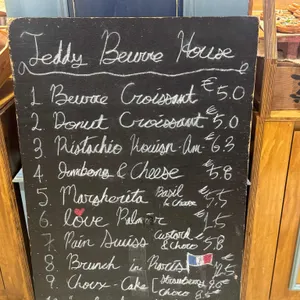 Teddy Beurre House
1. Beurre Croissant € 5.0
2. Donut Croissant € 5.0
3. Pistachio Kouign-Am € 6.3
4. Jambons & Cheese € 5.8
5. Margherita Basil & Cheese € 5.5
6. love Palmier
7. Pain Suiss Custard & Choco € 5.8
8. Brunch in Paris
9. Choux-Cake [ Strawberry
Choco 8.5